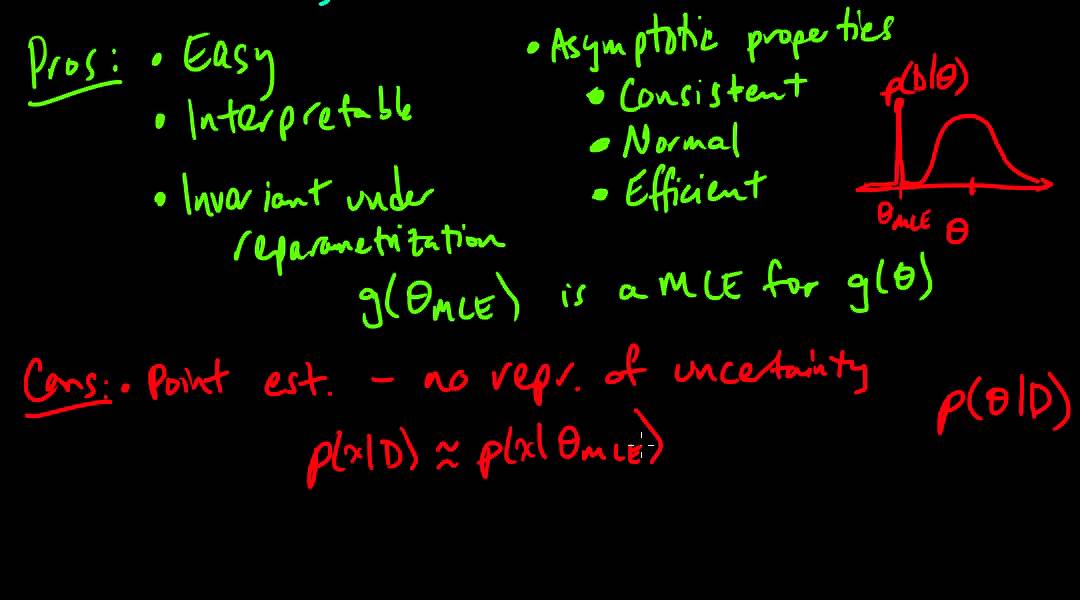 Pros: • Easy
• Interpretable
• Invariant under
reparametrization
• Asymptotic properties
• Consistent
• Normal
• Efficient
p(D|θ)
θMLE θ
g(θMLE) is a MLE for g(θ)
Cons: • Point est. – no repr. of uncertainty
p(θ|D)
p(x|D) ≈ p(x|θMLE)